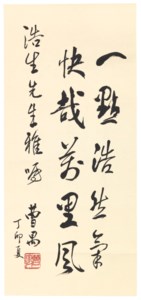 一點浩然氣
快哉萬里風
浩生先生雅嘱
曹禺
丁卯夏